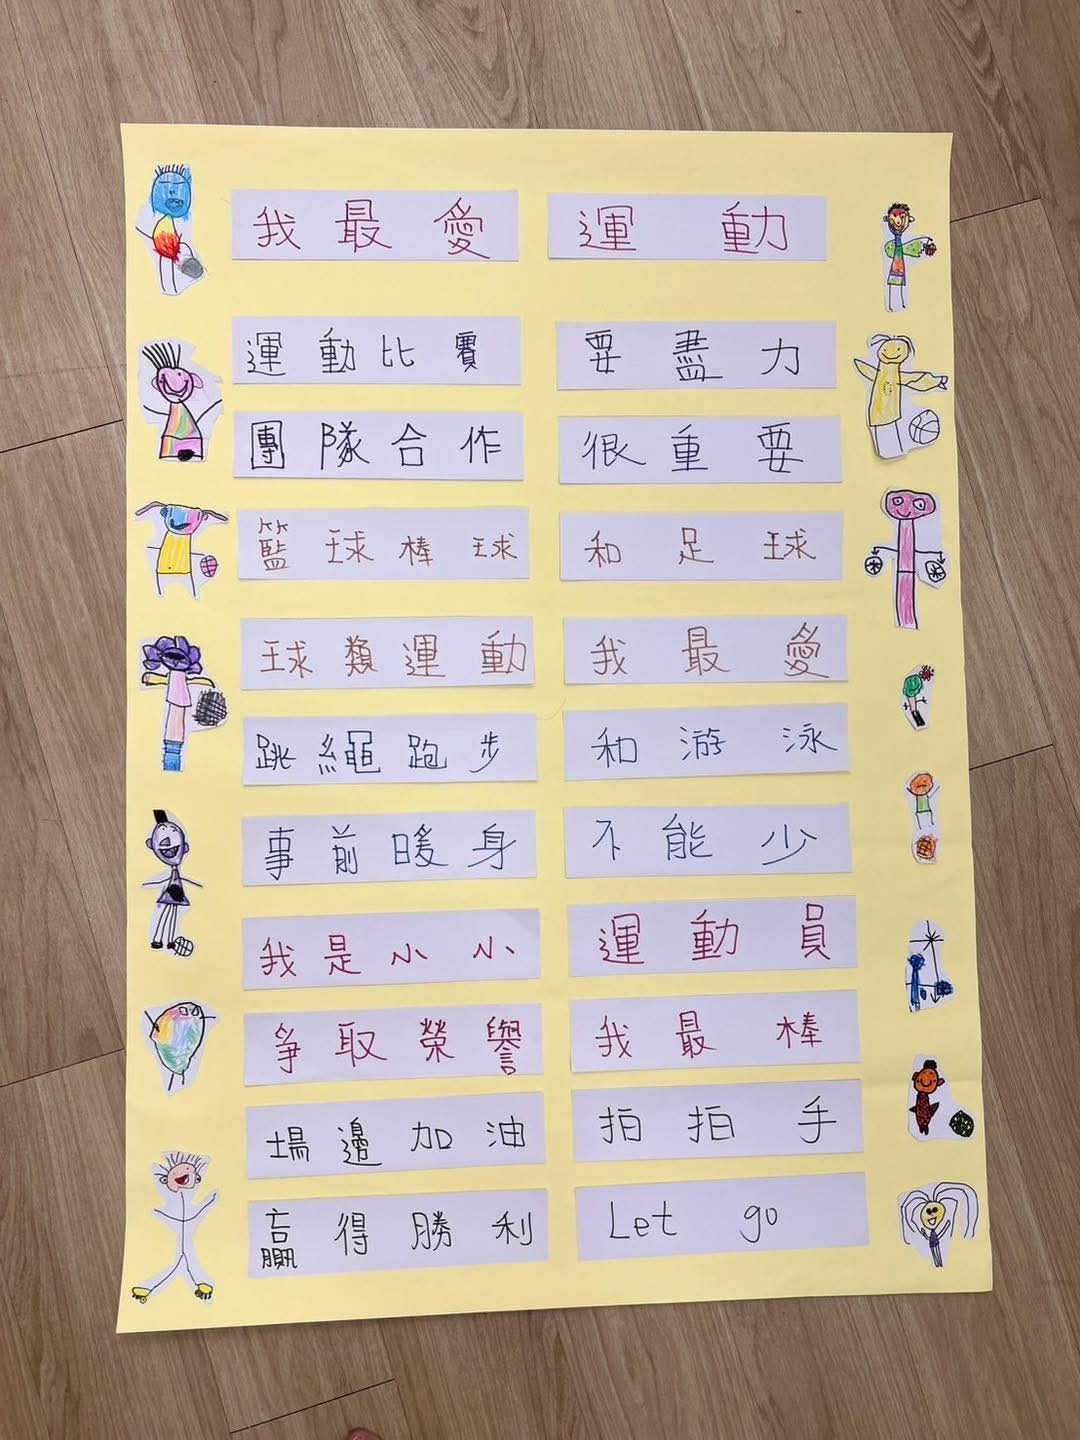 我最愛 運動
運動比賽 要盡力
團隊合作 很重要
籃球棒球 和足球
球類運動 我最愛
跳繩跑步 和游泳
事前暖身 不能少
我是小小 運動員
爭取榮譽 我最棒
場邊加油 拍拍手
贏得勝利 Let go